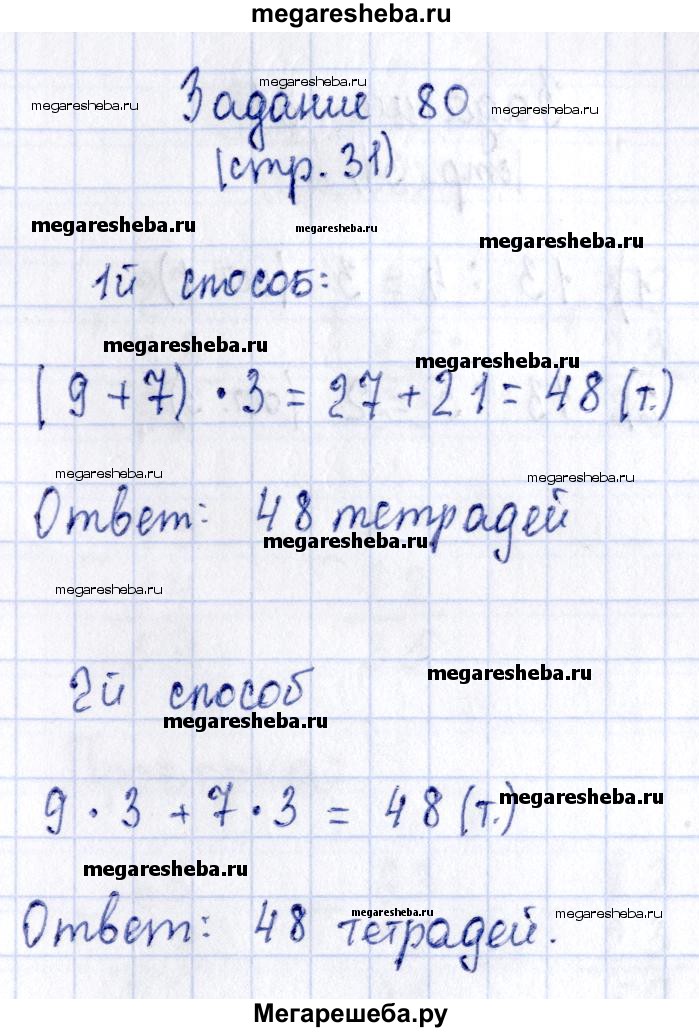 megaresheba.ru
megaresheba.ru
megaresheba.ru Задание 80 megaresheba.ru
(стр. 31)
megaresheba.ru megaresheba.ru megaresheba.ru
1й способ:
megaresheba.ru megaresheba.ru
(9+7)·3=27+21=48(т.)
megaresheba.ru megaresheba.ru
Ответ: 48 тетрадей
megaresheba.ru
megaresheba.ru
2й способ megaresheba.ru
megaresheba.ru
9·3+7·3=48(т.) megaresheba.ru
megaresheba.ru
megaresheba.ru megaresheba.ru
Ответ: 48 тетрадей.
Мегарешеба.ру